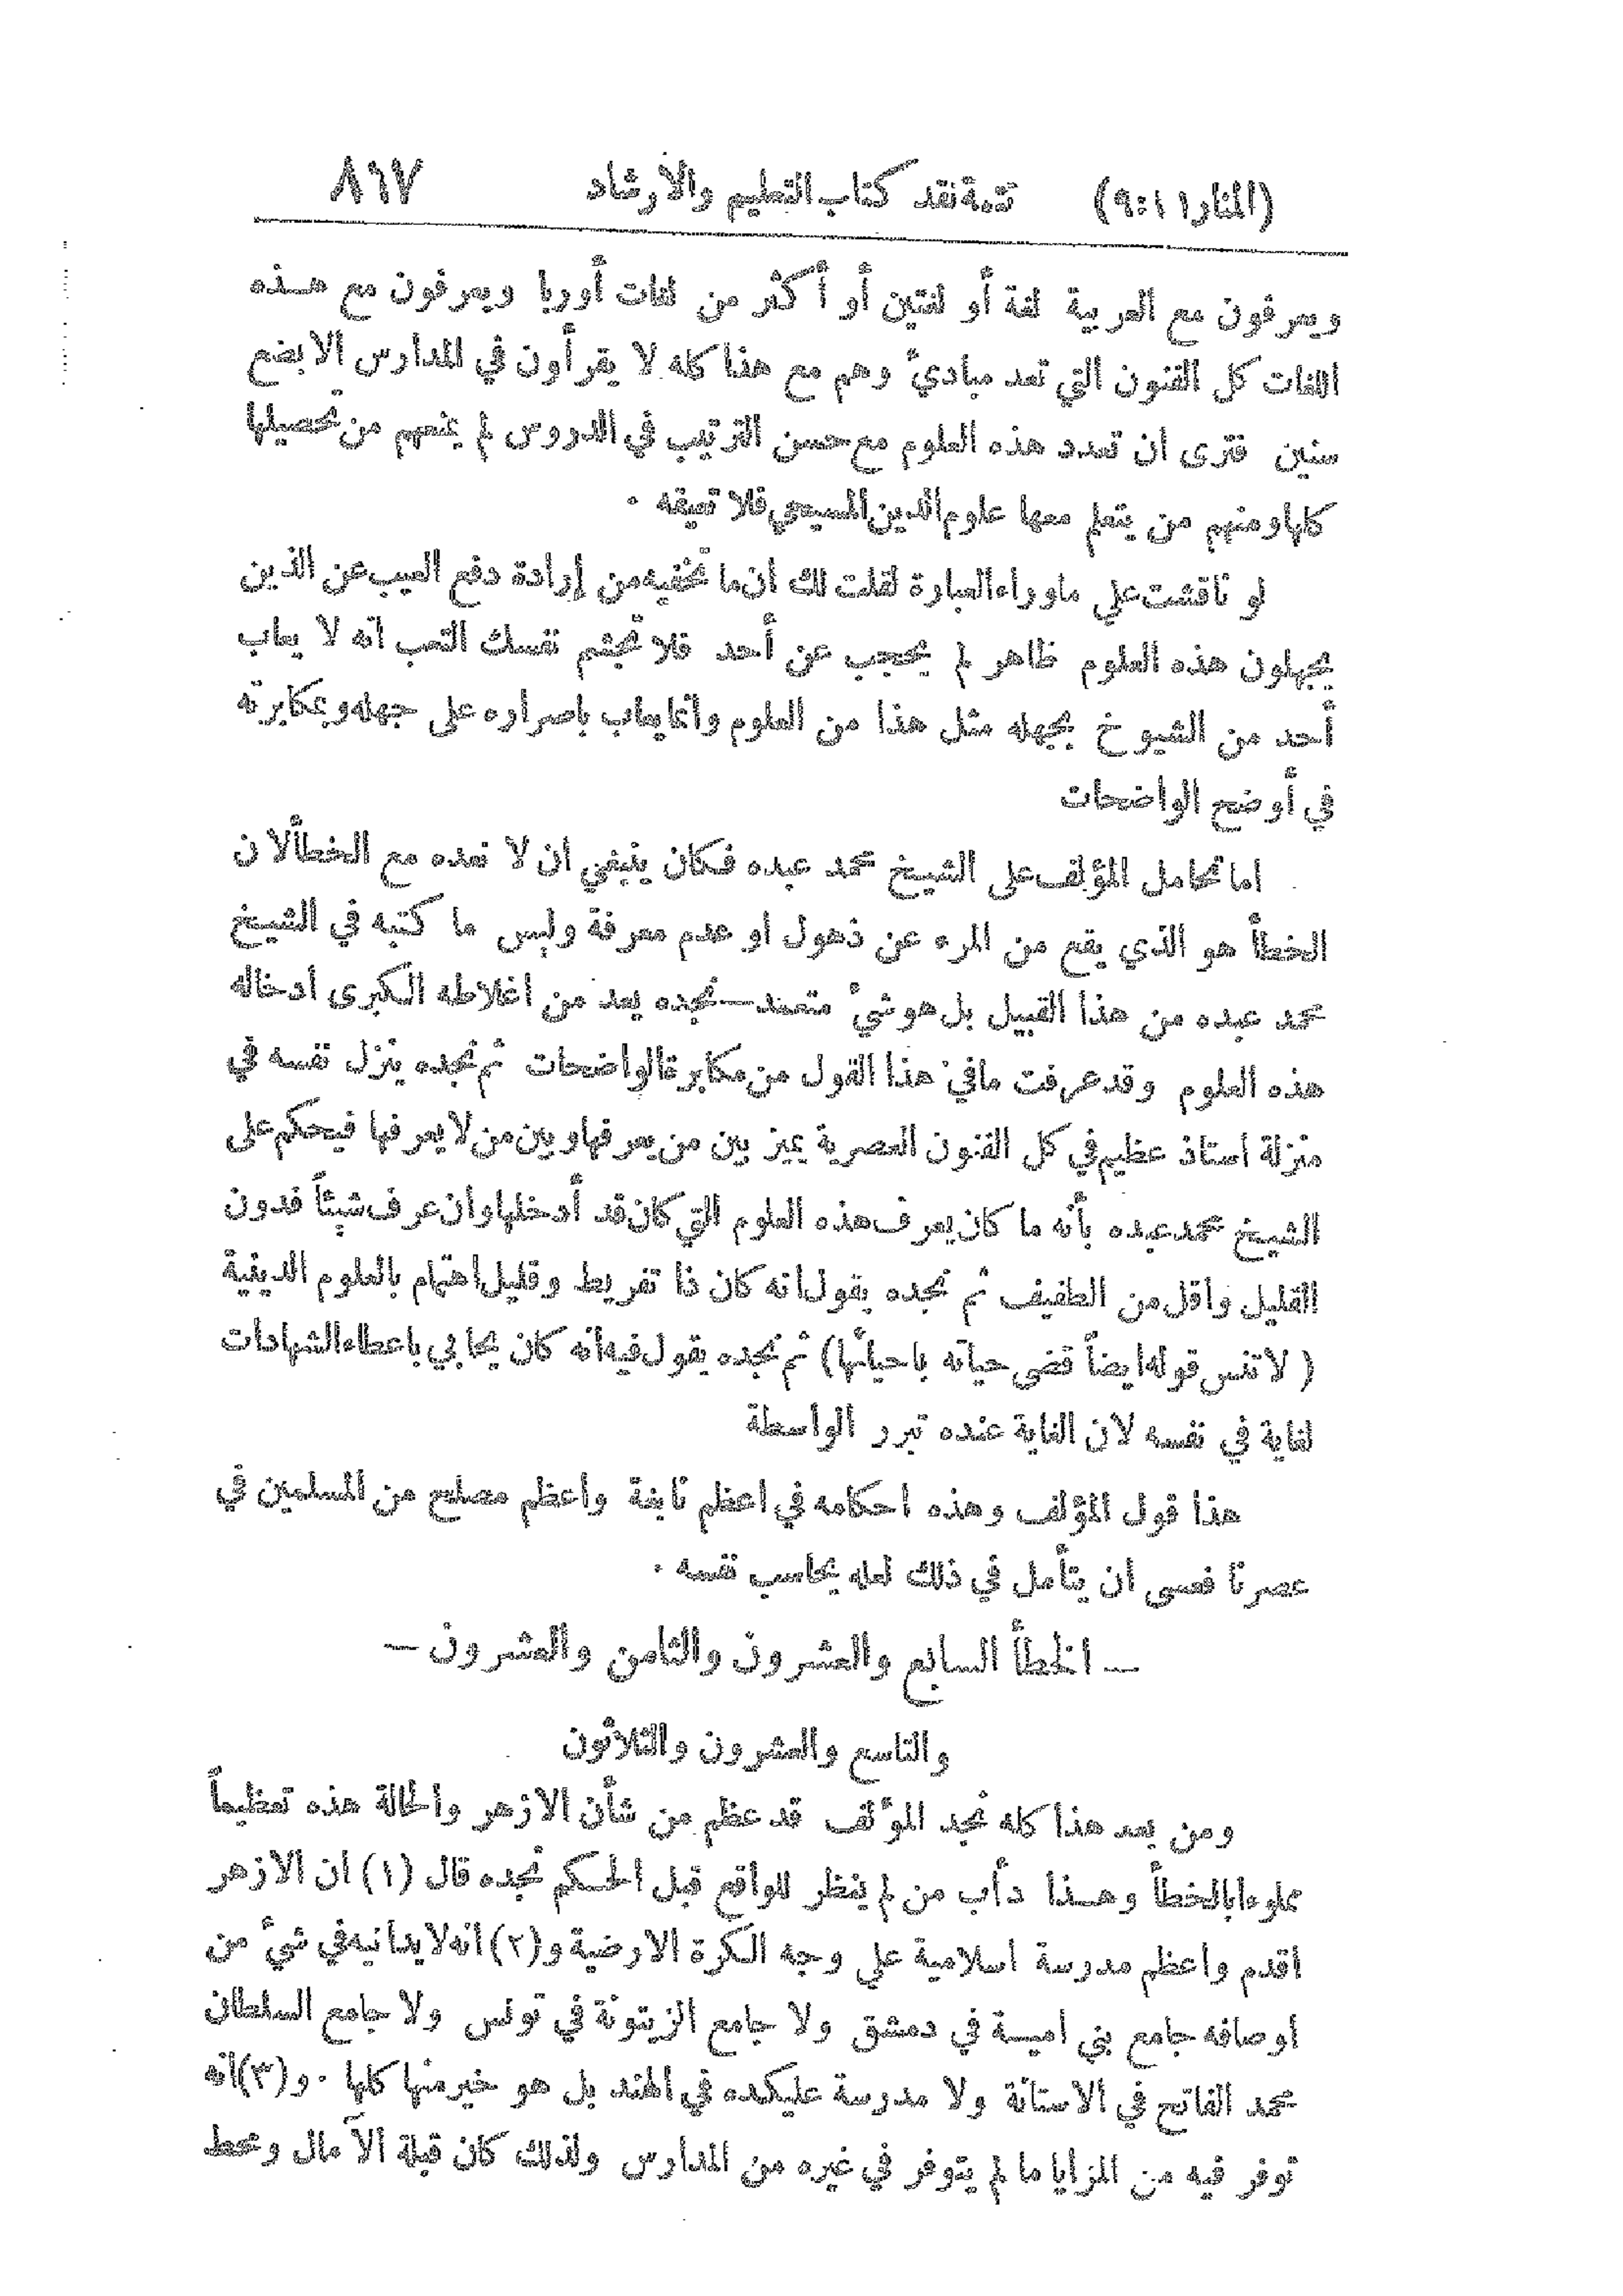 (المنار١١:٩) تتمة نقد كتاب التعليم والارشاد ٨٦٧
ويعرفون مع العربية لغة أو لغتين أو أكثر من لغات أوربا ويعرفون مع هذه
اللغات كل الفنون التي تعد مبادئ وهم مع هذا كله لا يقرأون في المدارس الا بضع
سنين فترى ان تعدد هذه العلوم مع حسن الترتيب في الدروس لم يمنعهم من تحصيلها
كلها ومنهم من يتعلم معها علوم الدين المسيحي فلا تعيقه ·
لو ناقشت على ما وراء العبارة لقلت لك ان ما تخفيه من إرادة دفع العيب عن الذين
يجهلون هذه العلوم ظاهر لم يحجب عن أحد فلا تجشم نفسك التعب انه لا يعاب
أحد من الشيوخ بجهله مثل هذا من العلوم وانما يعاب باصراره على جهله وبمكابرته
في أوضح الواضحات
اما تحامل المؤلف على الشيخ محمد عبده فكان ينبغي ان لا نعده مع الخطأ لان
الخطأ هو الذي يقع من المرء عن ذهول او عدم معرفة وليس ما كتبه في الشيخ
محمد عبده من هذا القبيل بل هو شيء متعمد — نجده يعد من اغلاطه الكبرى ادخاله
هذه العلوم وقد عرفت ما في هذا القول من مكابرة الواضحات ثم نجده ينزل نفسه في
منزلة استاذ عظيم في كل الفنون العصرية يميز بين من يعرفها وبين من لا يعرفها فيحكم على
الشيخ محمد عبده بأنه ما كان يعرف هذه العلوم التي كان قد أدخلها وان عرف شيئاً فدون
القليل واقل من الطفيف ثم نجده يقول انه كان ذا تفريط وقليل اهتمام بالعلوم الدينية
( لا تنس قوله ايضاً قضى حياته باحيائها ) ثم نجده يقول فيه أنه كان يحابي باعطاء الشهادات
لغاية في نفسه لان الغاية عنده تبرر الواسطة
هذا قول المؤلف وهذه احكامه في اعظم نابغة واعظم مصلح من المسلمين في
عصرنا فعسى ان يتأمل في ذلك لعله يحاسب نفسه ·
— الخطأ السابع والعشرون والثامن والعشرون —
والتاسع والعشرون والثلاثون
ومن بعد هذا كله نجد المؤلف قد عظم من شأن الازهر والحالة هذه تعظيماً
مملوءا بالخطأ وهذا دأب من لم ينظر للواقع قبل الحكم نجده قال (١) ان الازهر
اقدم واعظم مدرسة اسلامية على وجه الكرة الارضية و(٢) انه لا يدانيه في شيء من
اوصافه جامع بني امية في دمشق ولا جامع الزيتونة في تونس ولا جامع السلطان
محمد الفاتح في الاستانة ولا مدرسة عليكده في الهند بل هو خير منها كلها · و(٣) انه
توفر فيه من المزايا ما لم يتوفر في غيره من المدارس ولذلك كان قبلة الآمال ومحط